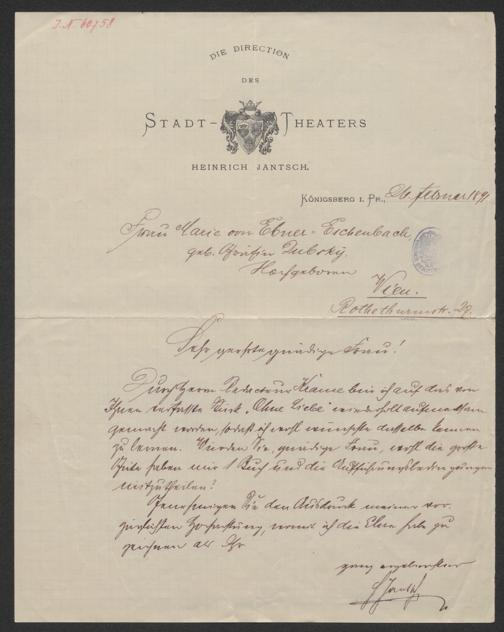 J.N 60758
DIE DIRECTION
DES
STADT-THEATERS
HEINRICH JANTSCH.
KÖNIGSBERG I. PR., 26. Februar 1891
Frau Marie von Ebner-Eschenbach,
geb. Gräfin Dubsky.
Hochgeboren
Wien.
Rothethurmstr. 27.
Sehr geehrte gnädige Frau!
Durch Herrn Redacteur bin ich auf das von
Ihnen verfaßte Stück „Ohne Liebe" wiederholt aufmerksam
gemacht worden, sodaß ich wohl wünschte dasselbe kennen
zu lernen. Würden Sie, gnädige Frau, wohl die große
Güte haben mir 1 Buch und die Aufführungsbedingungen
mitzutheilen?
Genehmigen Sie den Ausdruck meiner vor-
züglichsten Hochachtung, womit ich die Ehre habe zu
zeichnen als Ihr
ganz ergebenster
HJantsch